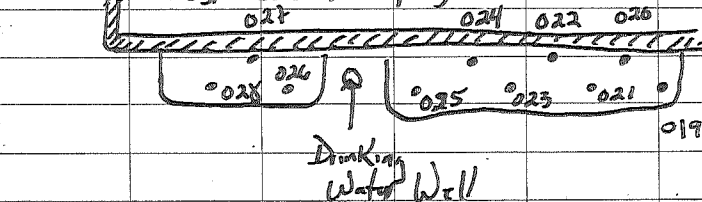 027 024 022 020
028 026 025 023 021
019
Drinking
Water Well